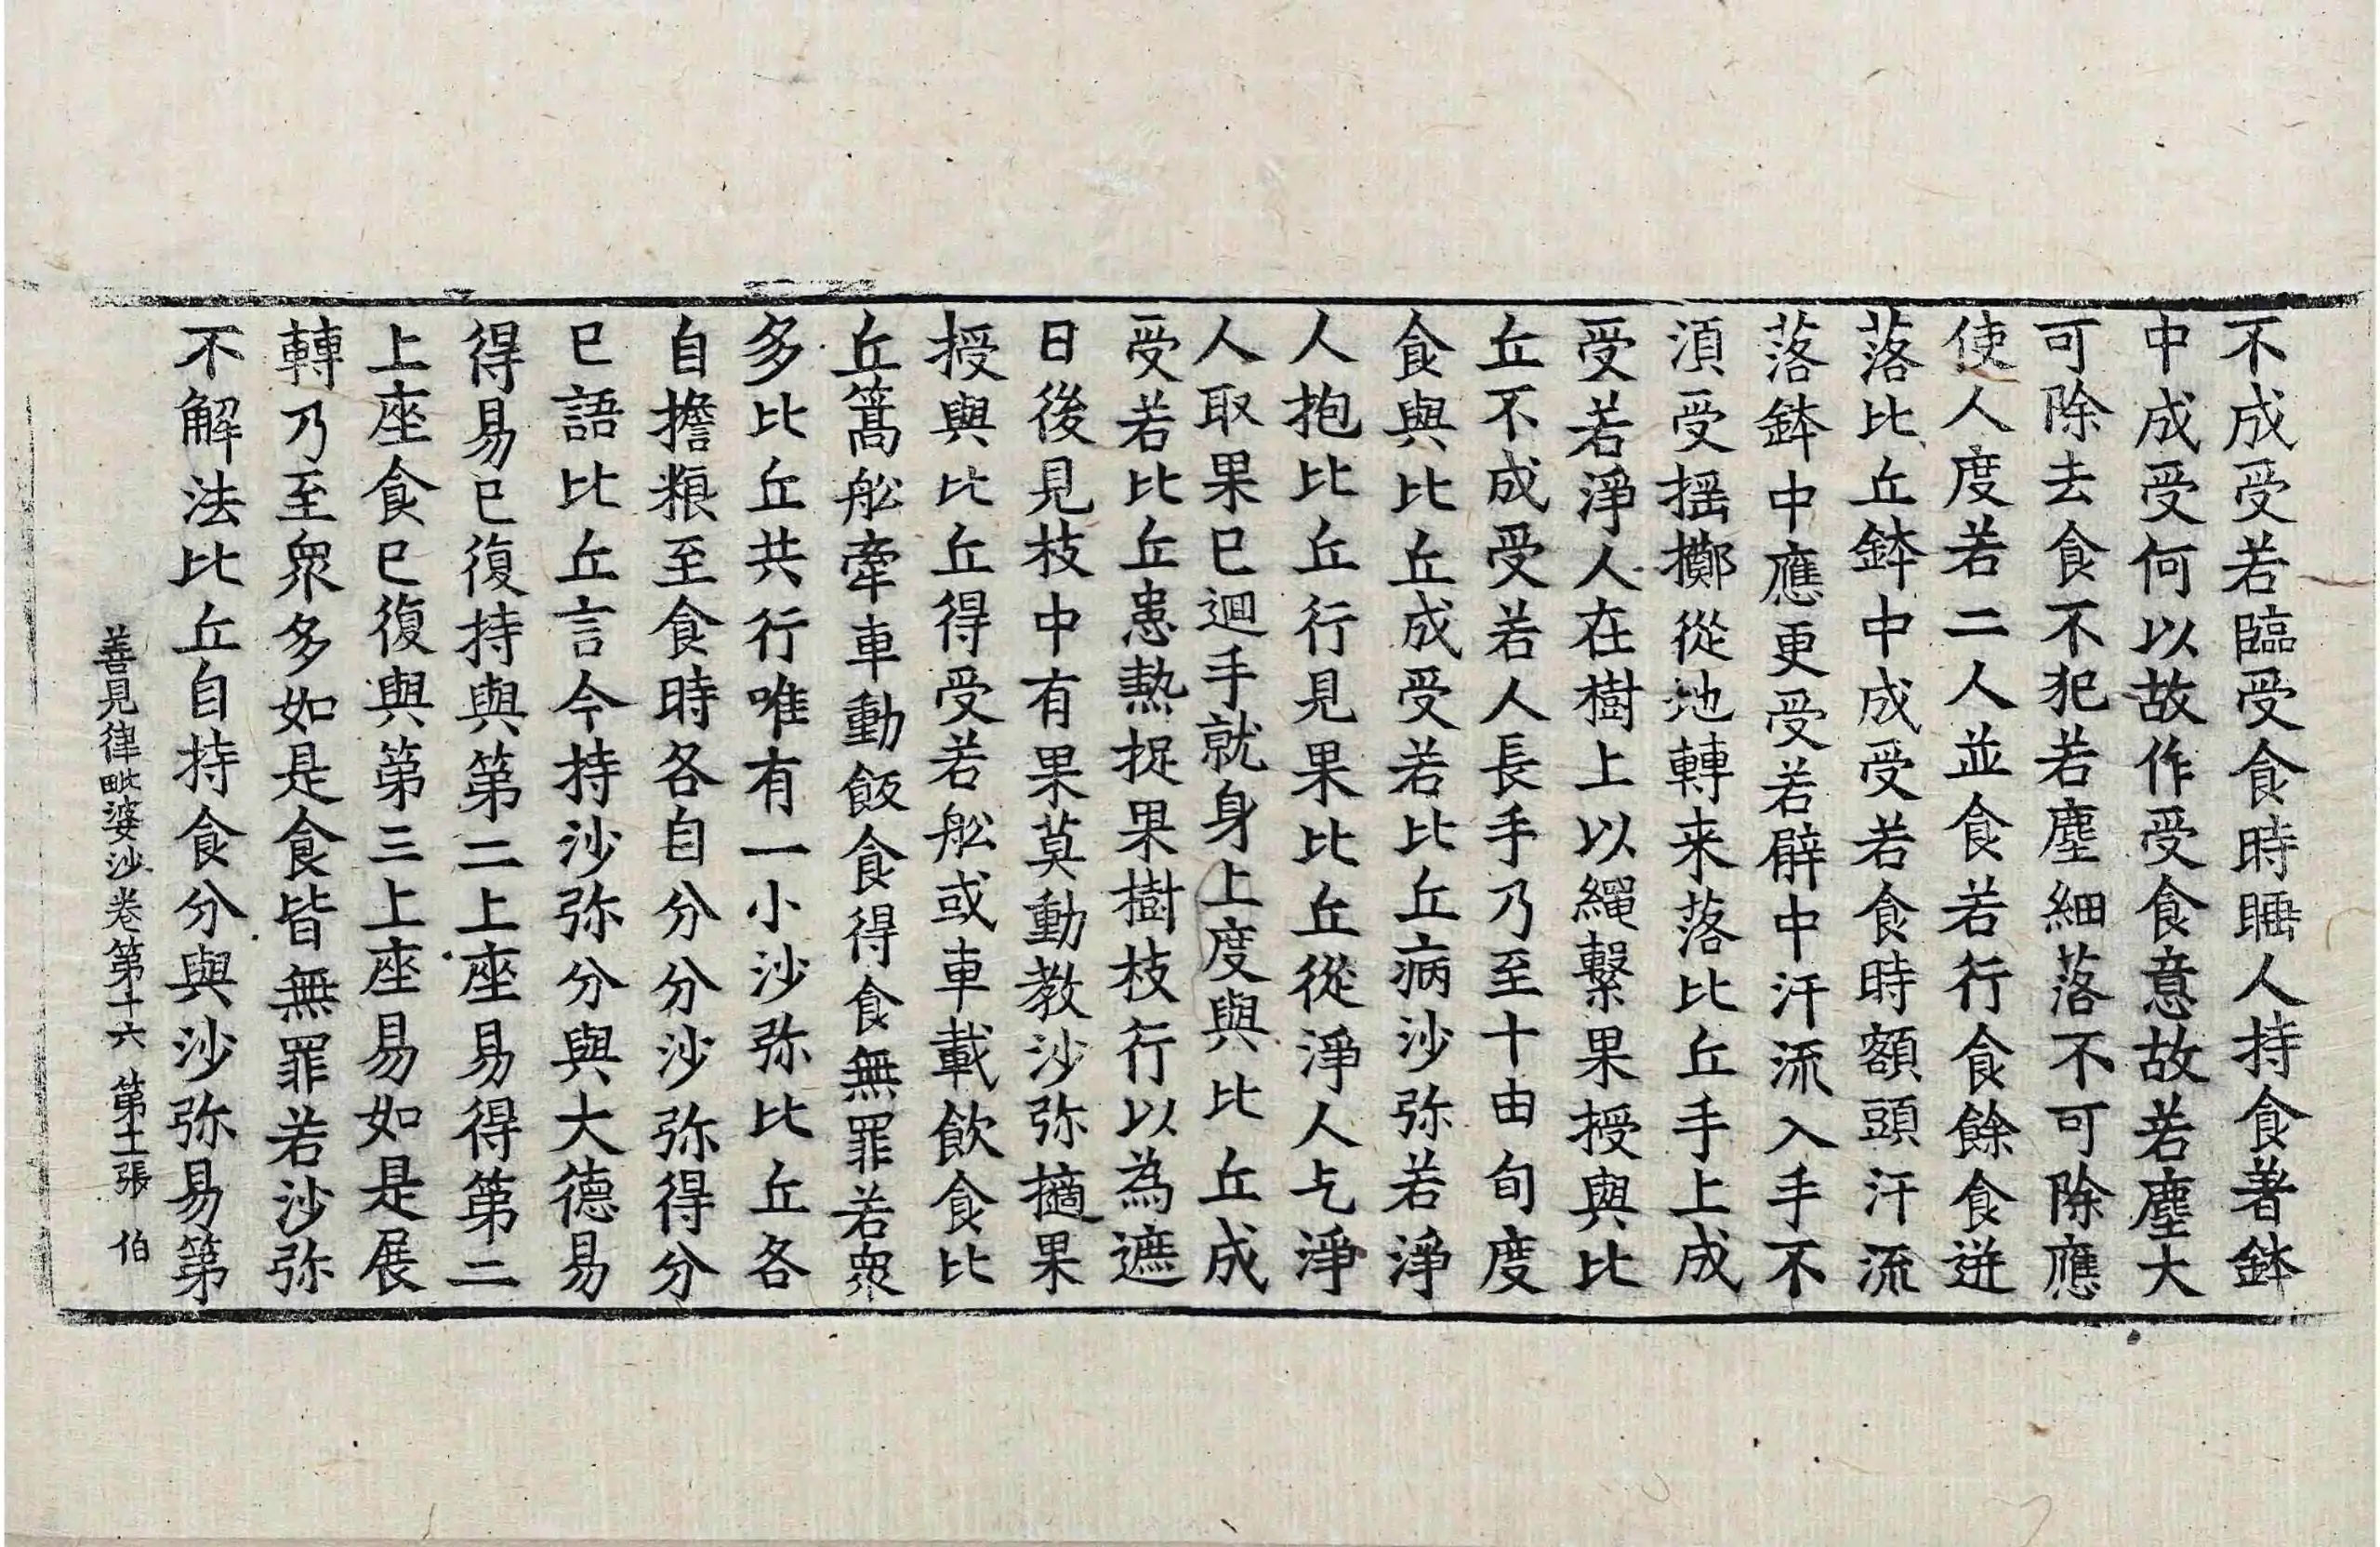 不成受若臨受食時睡人持食著鉢
中成受何以故作受食意故若塵大
可除去食不犯若塵細落不可除應
使人度若二人並食若行食餘食迸
落比丘鉢中成受若食時額頭汗流
落鉢中應更受若臂中汗流入手不
湏受摇擲從地轉来落比丘手上成
受若淨人在樹上以繩繫果授與比
丘不成受若人長手乃至十由旬度
食與比丘成受若比丘病沙弥若淨
人抱比丘行見果比丘從淨人乞淨
人取果已迴手就身上度與比丘成
受若比丘患熱捉果樹枝行以為遮
日後見枝中有果莫動教沙弥擿果
授與比丘得受若舩或車載飲食比
丘篙舩牽車動飯食得食無罪若衆
多比丘共行唯有一小沙弥比丘各
自擔粮至食時各自分分沙弥得分
已語比丘言今持沙弥分與大德易
得易已復持與第二上座易得第二
上座食已復與第三上座易如是展
轉乃至衆多如是食皆無罪若沙弥
不解法比丘自持食分與沙弥易第
善見律毗婆沙卷第十六 第十二張 伯